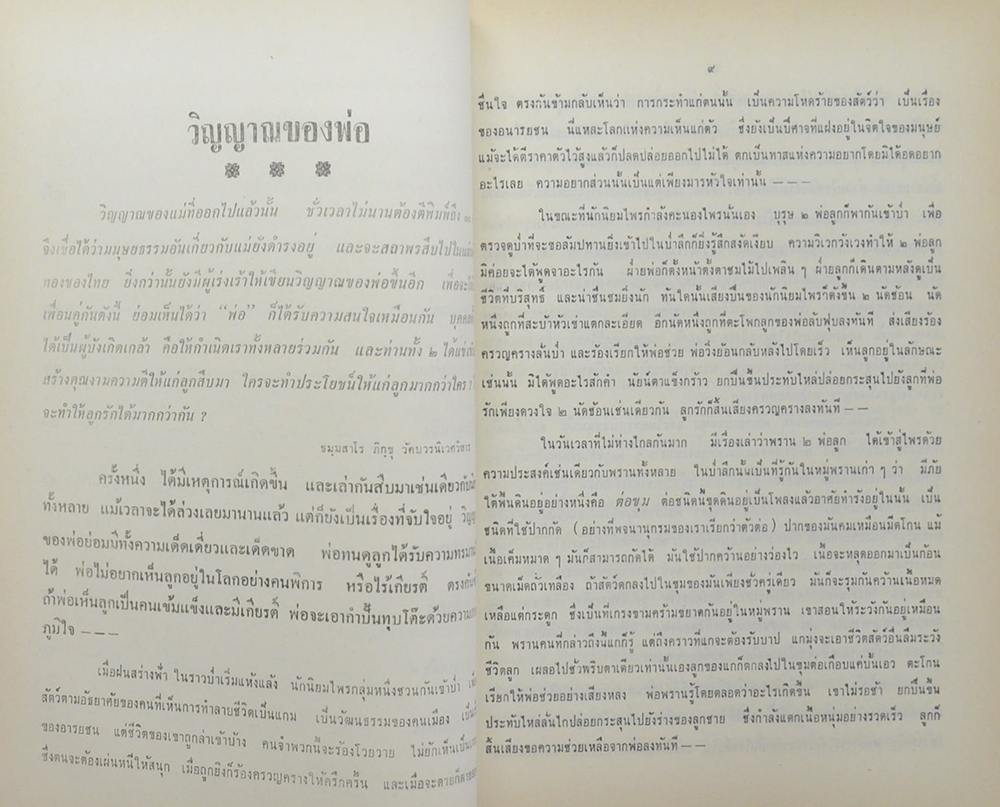 วิญญาณของพ่อ
วิญญาณของแม่ที่ออกไปแล้วนั้น ชั่วเวลาไม่นานต้องตีพิมพ์ถึง ๒
จึงเชื่อได้ว่ามนุษยธรรมอันเกี่ยวกับแม่ยังดำรงอยู่ และจะสถาพรสืบไปใน
ทองของไทย ยิ่งกว่านั้นยังมีผู้เร่งเร้าให้เขียนวิญญาณของพ่อขึ้นอีก
เพื่อนคู่กันดังนี้ ย่อมเห็นได้ว่า “พ่อ” ก็ได้รับความสนใจเหมือนกัน
ได้เป็นผู้บังเกิดเกล้า คือให้กำเนิดเราทั้งหลายร่วมกัน และท่านทั้ง ๒
สร้างคุณงามความดีให้แก่ลูกสืบมา ใครจะทำประโยชน์ให้แก่ลูกมากกว่าใคร ?
จะทำให้ลูกรักได้มากกว่ากัน ?
ธมฺมสาโร ภิกฺขุ วัดบวรนิเวศวิหาร
ครั้งหนึ่ง ได้มีเหตุการณ์เกิดขึ้น และเล่ากันสืบมาเช่นเดียวกับ
ทั้งหลาย แม้เวลาจะได้ล่วงเลยมานานแล้ว แต่ก็ยังเป็นเรื่องที่จับใจอยู่
ของพ่อย่อมมีทั้งความเด็ดเดี่ยวและเด็ดขาด พ่อทนดูลูกได้รับความทรมาน
ได้ พ่อไม่อยากเห็นลูกอยู่ในโลกอย่างคนพิการ หรือไร้เกียรติ์
ถ้าพ่อเห็นลูกเป็นคนเข้มแข็งและมีเกียรติ์ พ่อจะเอากำปั้นทุบโต๊ะด้วยความ
ภูมิใจ – – –
เมื่อฝนสร่างฟ้า ในราวป่าเริ่มแห้งแล้ง นักนิยมไพรกลุ่มหนึ่งชวนกันเข้าป่า
สัตว์ตามอัธยาศัยของคนที่เห็นการทำลายชีวิตเป็นแกม เป็นวัฒนธรรมของคนเมือง
ของอารยชน แต่ชีวิตของเขาถูกล่าเข้าบ้าง คนจำพวกนี้จะร้องโวยวาย ไม่ยักเห็นเป็น
ซึ่งตนจะต้องเผ่นหนีให้สนุก เมื่อถูกยิงก็ร้องครวญครางให้ครึกครื้น และเมื่อจะตายก็
๙
ชื่นใจ ตรงกันข้ามกลับเห็นว่า การกระทำแก่ตนนั้น เป็นความโหดร้ายของสัตว์ว่า เป็นเรื่อง
ของอนารยชน นี่แหละโลกแห่งความเห็นแก่ตัว ซึ่งยังเป็นปีศาจที่แฝงอยู่ในจิตใจของมนุษย์
แม้จะได้ตีราคาตัวไว้สูงแล้วก็ปลดปล่อยออกไปไม่ได้ ตกเป็นทาสแห่งความอยากโดยมิได้อดอยาก
อะไรเลย ความอยากส่วนนั้นเป็นแต่เพียงมารหัวใจเท่านั้น – – –
ในขณะที่นักนิยมไพรกำลังคะนองไพรนั้นเอง บุรุษ ๒ พ่อลูกก็พากันเข้าป่า เพื่อ
ตรวจดูป่าที่จะขอสัมปทานยิ่งเข้าไปในป่าลึกก็ยิ่งรู้สึกสงัดเงียบ ความวิเวกวังเวงทำให้ ๒ พ่อลูก
มิค่อยจะได้พูดจาอะไรกัน ฝ่ายพ่อก็ตั้งหน้าตั้งตาชมไม้ไปเพลิน ๆ ฝ่ายลูกก็เดินตามหลังดูเป็น
ชีวิตที่บริสุทธิ์ และน่าชื่นชมยิ่งนัก ทันใดนั้นเสียงปืนของนักนิยมไพรก็ดังขึ้น ๒ นัดซ้อน นัด
หนึ่งถูกที่สะบ้าหัวเข่าแตกละเอียด อีกนัดหนึ่งถูกที่ตะโพกลูกของพ่อล้มฟุบลงทันที ส่งเสียงร้อง
ครวญครางลั่นป่า และร้องเรียกให้พ่อช่วย พ่อวิ่งย้อนกลับหลังไปโดยเร็ว เห็นลูกอยู่ในลักษณะ
เช่นนั้น มิได้พูดอะไรสักคำ นัยน์ตาแข็งกร้าว ยกปืนขึ้นประทับไหล่ปล่อยกระสุนไปยังลูกที่พ่อ
รักเพียงดวงใจ ๒ นัดซ้อนเช่นเดียวกัน ลูกรักก็สิ้นเสียงครวญครางลงทันที – –
ในวันเวลาที่ไม่ห่างไกลกันมาก มีเรื่องเล่าว่าพราน ๒ พ่อลูก ได้เข้าสู่ไพรด้วย
ความประสงค์เช่นเดียวกับพรานทั้งหลาย ในป่าลึกนั้นเป็นที่รู้กันในหมู่พรานเก่า ๆ ว่า มีภัย
ใต้พื้นดินอยู่อย่างหนึ่งคือ ต่อขุม ต่อชนิดนี้ขุดดินอยู่เป็นโพลงแล้วอาศัยทำรังอยู่ในนั้น เป็น
ชนิดที่ใช้ปากกัด (อย่างที่พจนานุกรมของเราเรียกว่าตัวต่อ) ปากของมันคมเหมือนมีดโกน แม้
เนื้อเค็มหมาด ๆ มันก็สามารถกัดได้ มันใช้ปากคว้านอย่างว่องไว เนื้อจะหลุดออกมาเป็นก้อน
ขนาดเม็ดถั่วเหลือง ถ้าสัตว์ตกลงไปในขุมของมันเพียงชั่วครู่เดียว มันก็จะรุมกันคว้านเนื้อหมด
เหลือแต่กระดูก ซึ่งเป็นที่เกรงขามคร้ามขยาดกันอยู่ในหมู่พราน เขาสอนให้ระวังกันอยู่เหมือน
กัน พรานคนที่กล่าวถึงนี้แกก็รู้ แต่ถึงคราวที่แกจะต้องรับบาป แกมุ่งจะเอาชีวิตสัตว์อื่นลืมระวัง
ชีวิตลูก เผลอไปชั่วพริบตาเดียวเท่านั้นเองลูกของแกก็ตกลงไปในขุมต่อเกือบแค่บั้นเอว ตะโกน
เรียกให้พ่อช่วยอย่างเสียงหลง พ่อพรานรู้โดยตลอดว่าอะไรเกิดขึ้น เขาไม่รอช้า ยกปืนขึ้น
ประทับไหล่ลั่นไกปล่อยกระสุนไปยังร่างของลูกชาย ซึ่งกำลังแตกเนื้อหนุ่มอย่างรวดเร็ว ลูกก็
สิ้นเสียงขอความช่วยเหลือจากพ่อลงทันที – –